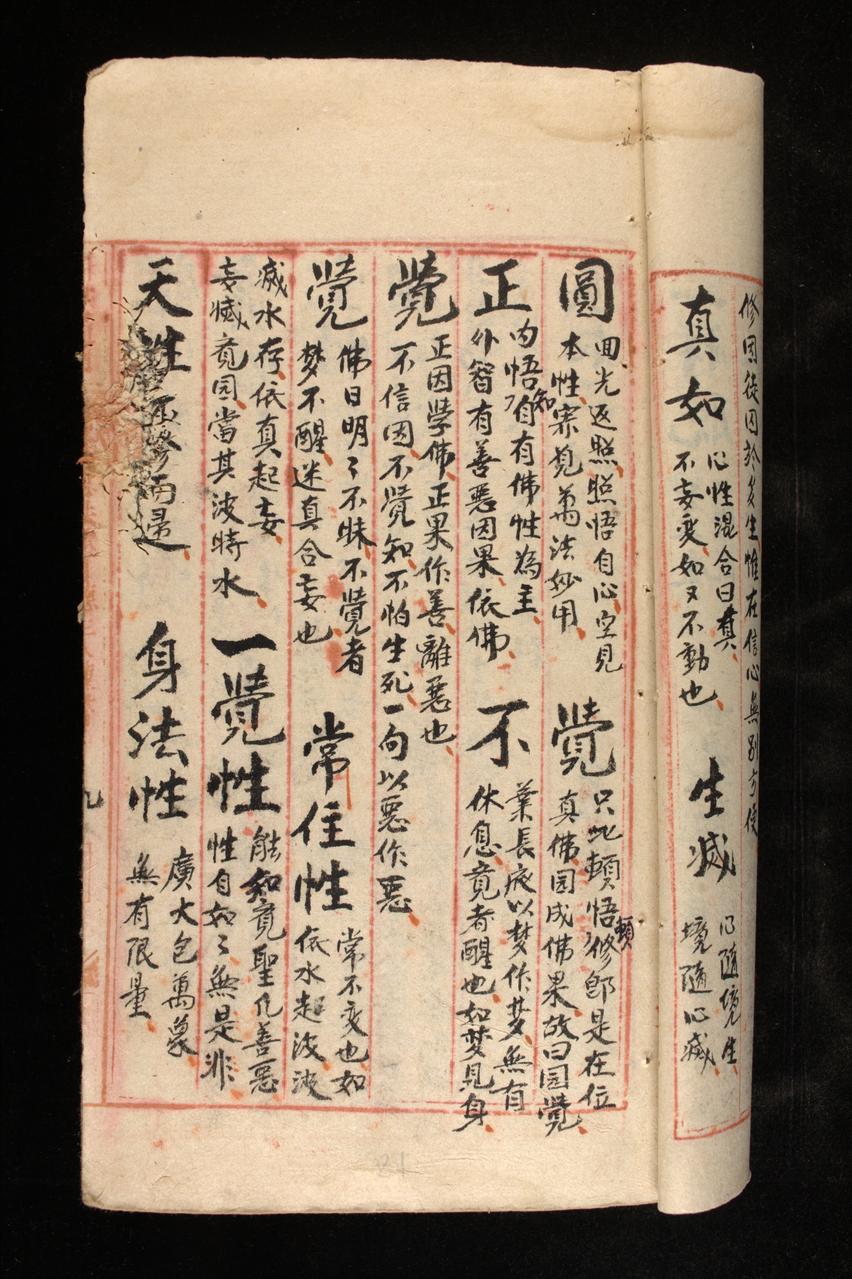 修因從因於久生惟在信心無别方便
真如
心性混合曰真
不妄变如又不動也
生滅
心隨境生
境隨心滅
圓
回光返照照悟自心空見
本性宗見萬法妙用
覺
只此頓悟頓修即是在位
真佛园成佛果故曰园覺
正
内悟知自有佛性為主
外智有善惡因果依佛
正因学佛正果作善離惡也
不覺
業長夜以梦作梦無有
休息竟者醒也如梦見身
不信因不覺知不怕生死一向以惡作惡
覺
佛日明々不昧不覺者
梦不醒迷真合妄也
常住性
常不变也如
依水起波波
滅水存依真起妄
妄滅竟园當其波時水
一覺性
能知竟聖凡善惡
性自如々無是非
天性
身法性
廣大包萬象
無有限量